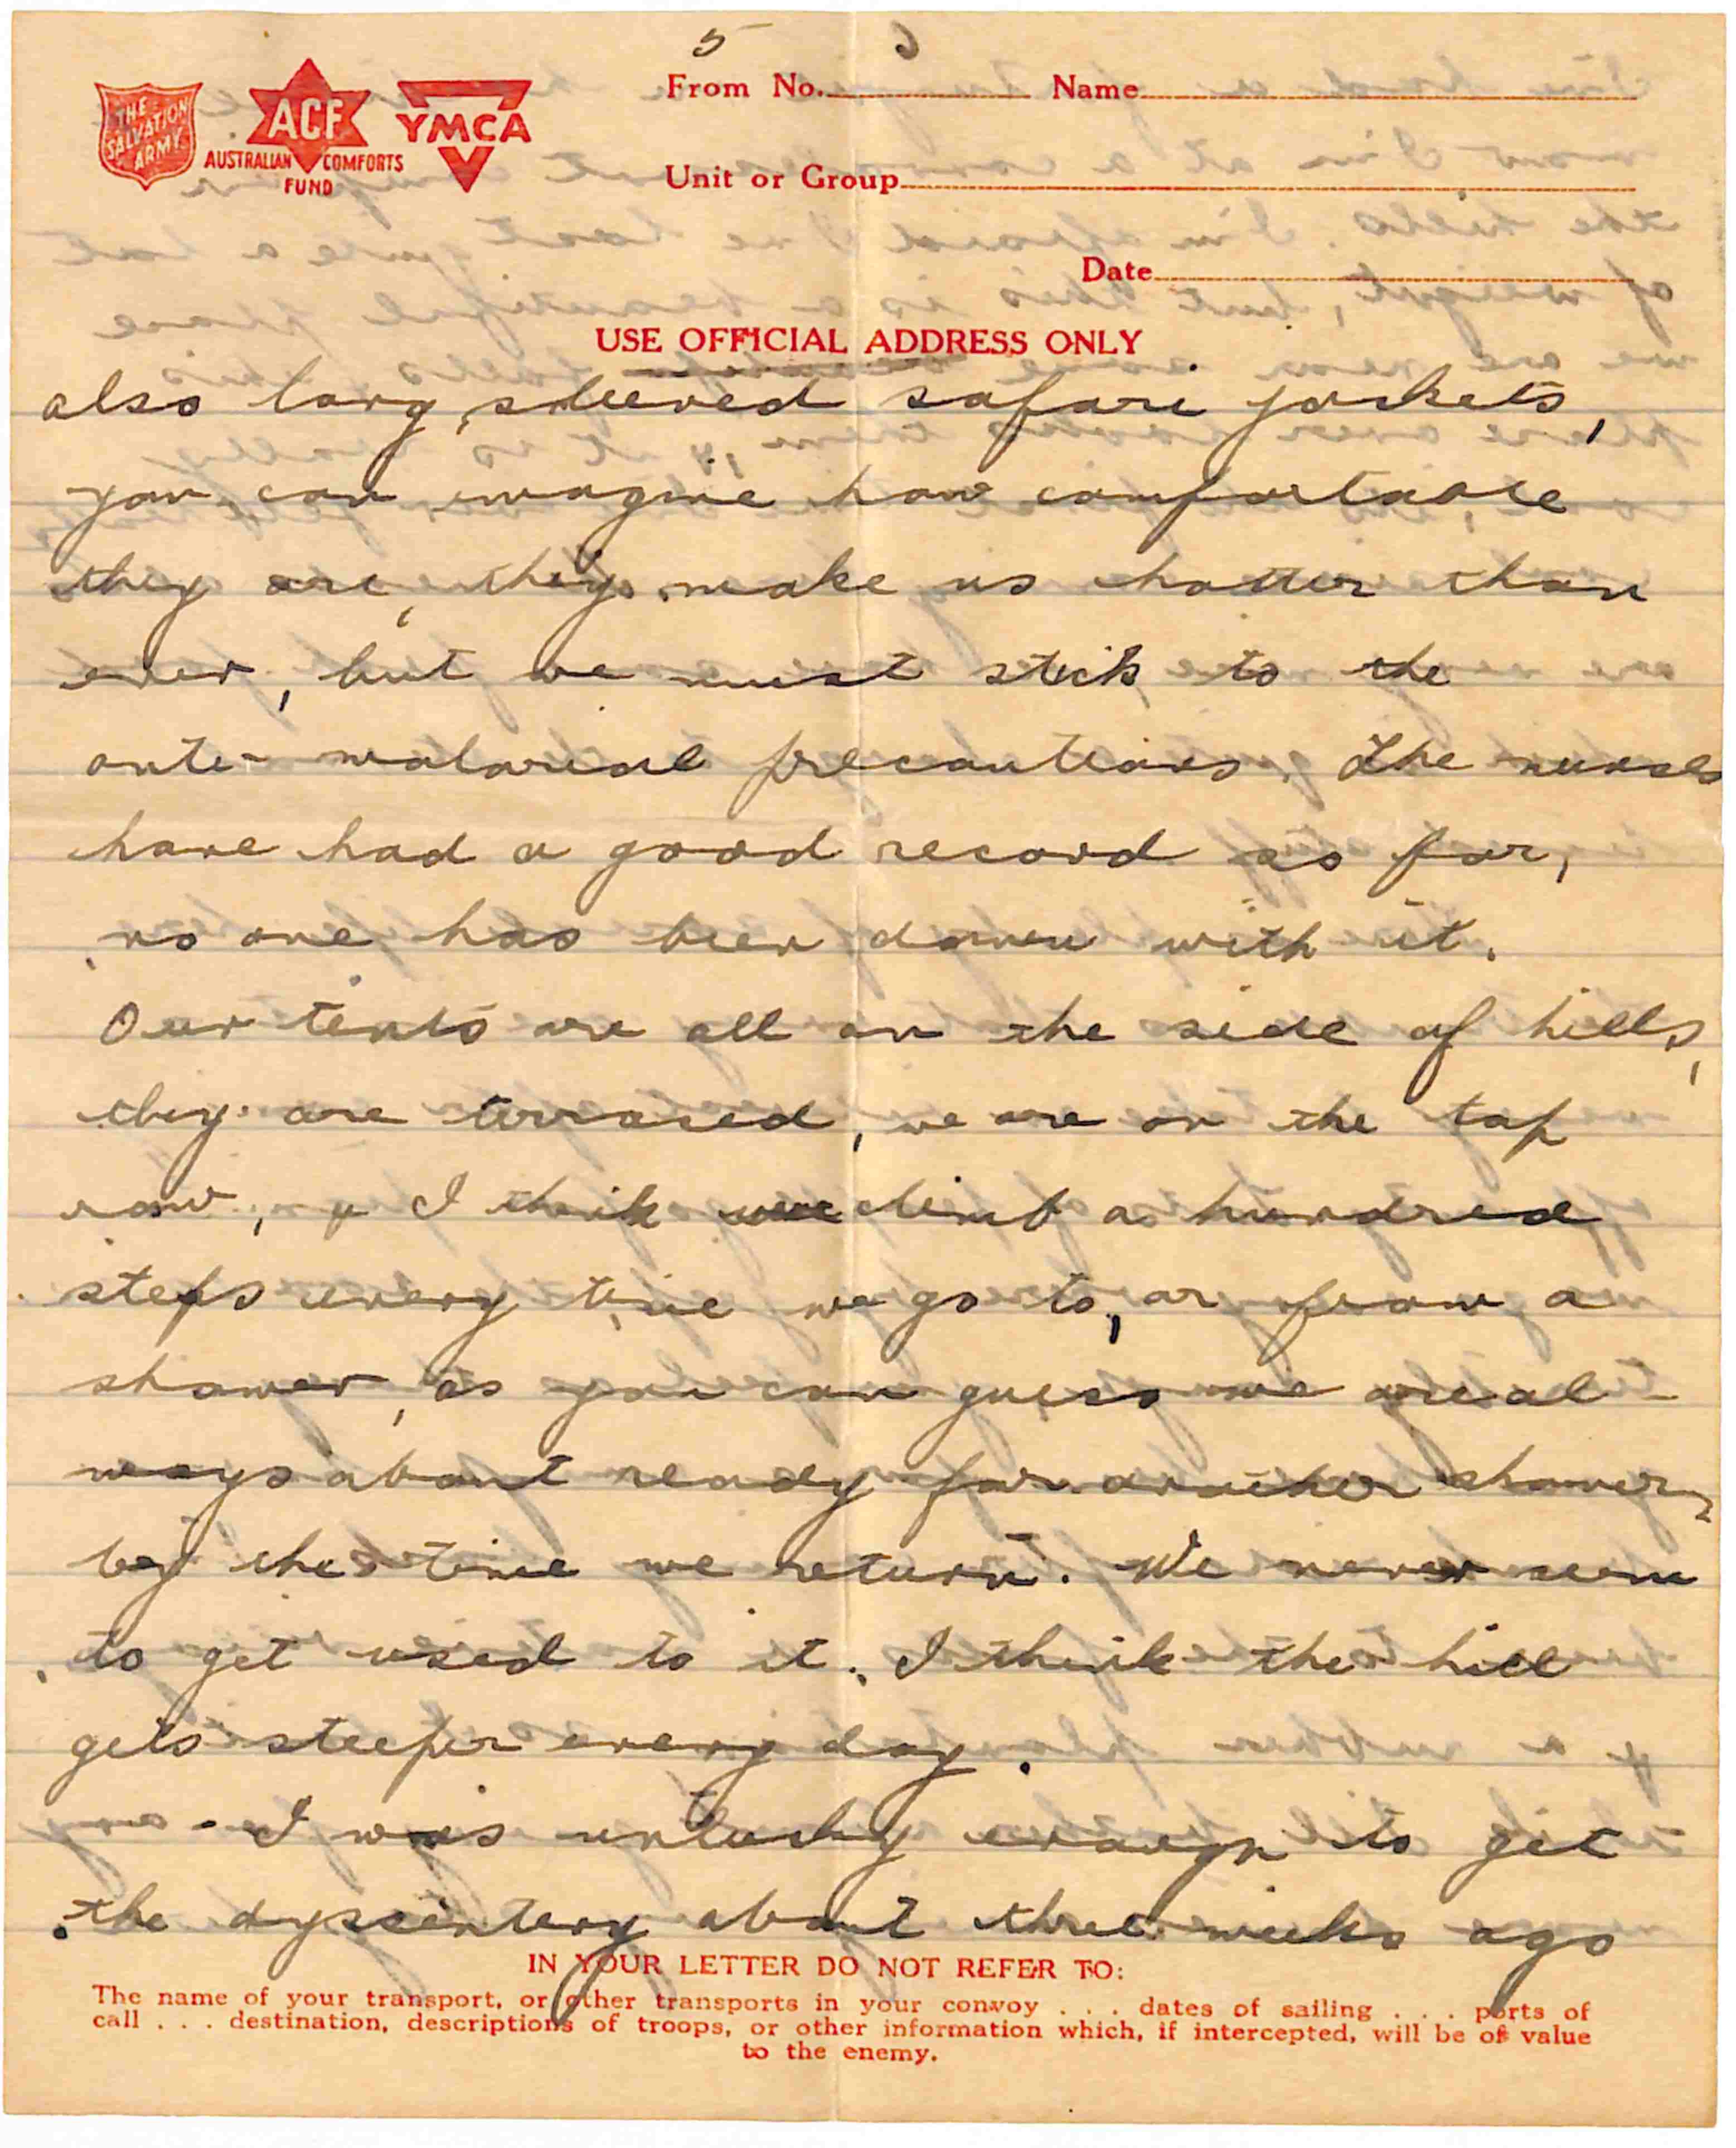 5
THE SALVATION ARMY
ACF
AUSTRALIAN COMFORTS FUND
YMCA
From No. Name
Unit or Group
Date
USE OFFICIAL ADDRESS ONLY
also long sleeved safari jackets,
you can imagine how comfortable
they are, they make us hotter than
ever, but we must stick to the
anti-malarial precautions. The nurses
have had a good record so far,
no one has been down with it.
Our tents are all on the side of hills,
they are terraced, we are on the top
row, & I think we climb a hundred
steps every time we go to, or from a
shower, as you can guess we are al-
ways about ready for another shower,
by the time we return. We never seem
to get used to it. I think the hill
gets steeper every day.
I was unlucky enough to get
the dyssentery about three weeks ago
IN YOUR LETTER DO NOT REFER TO:
The name of your transport, or other transports in your convoy . . . dates of sailing . . . ports of
call . . . destination, descriptions of troops, or other information which, if intercepted, will be of value
to the enemy.